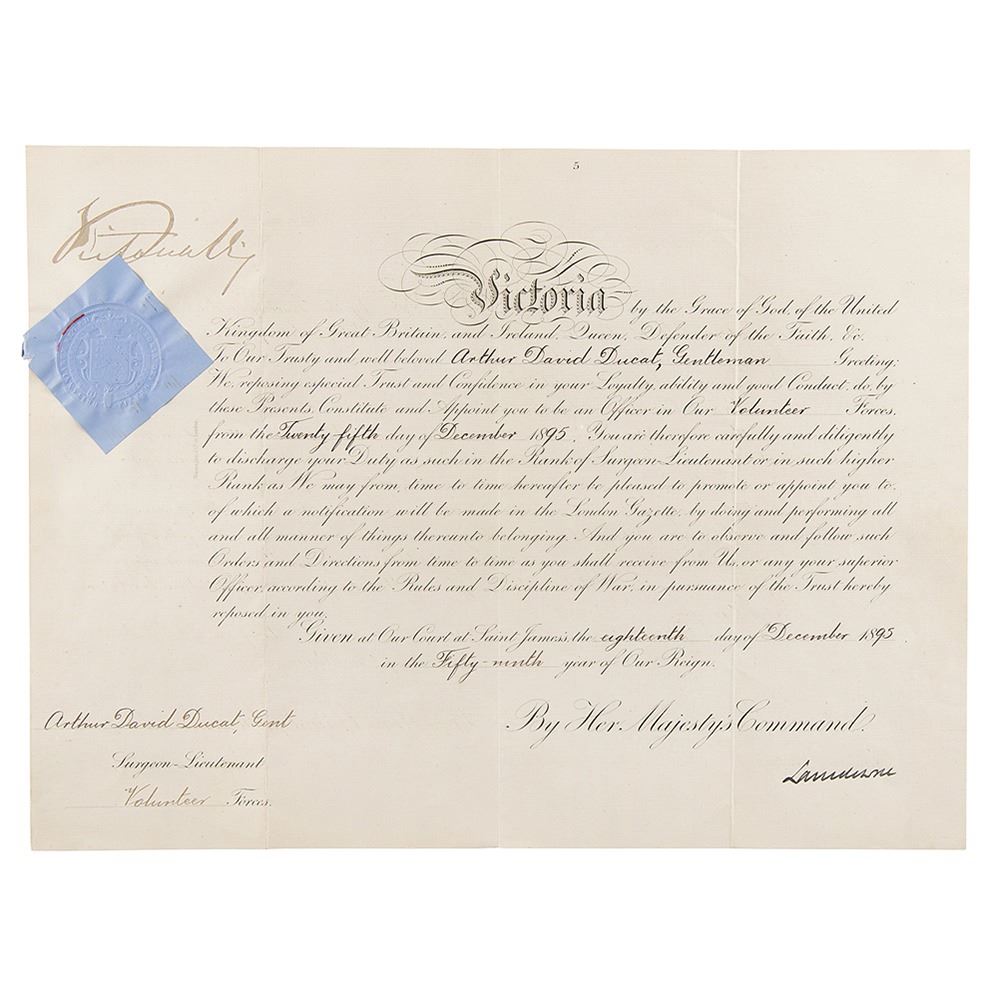 5
Victoria R I
Victoria by the Grace of God, of the United
Kingdom of Great Britain, and Ireland, Queen, Defender of the Faith, &c.
To Our Trusty and well beloved Arthur David Ducat, Gentleman Greeting:
We, reposing especial Trust and Confidence in your Loyalty, ability and good Conduct, do, by
these Presents, Constitute and Appoint you to be an Officer in Our Volunteer Forces,
from the Twenty fifth day of December 1895. You are therefore carefully and diligently
to discharge your Duty as such in the Rank of Surgeon-Lieutenant or in such higher
Rank as We may from, time to time hereafter be pleased to promote or appoint you to,
of which a notification will be made in the London Gazette, by doing and performing all
and all manner of things thereunto belonging. And you are to observe and follow such
Orders and Directions from time to time as you shall receive from Us, or any your superior
Officer, according to the Rules and Discipline of War, in pursuance of the Trust hereby
reposed in you.
Given at Our Court at Saint James's, the eighteenth day of December 1895
in the Fifty-ninth year of Our Reign.
By Her Majesty's Command.
Lansdowne
Arthur David Ducat, Gent
Surgeon-Lieutenant
Volunteer Forces.